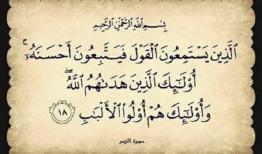 بِسْمِ اللَّهِ الرَّحْمَٰنِ الرَّحِيمِ
الَّذِينَ يَسْتَمِعُونَ الْقَوْلَ فَيَتَّبِعُونَ أَحْسَنَهُ ۚ
أُولَٰئِكَ الَّذِينَ هَدَاهُمُ اللَّهُ ۖ
وَأُولَٰئِكَ هُمْ أُولُو الْأَلْبَابِ ١٨
سورة الزمر